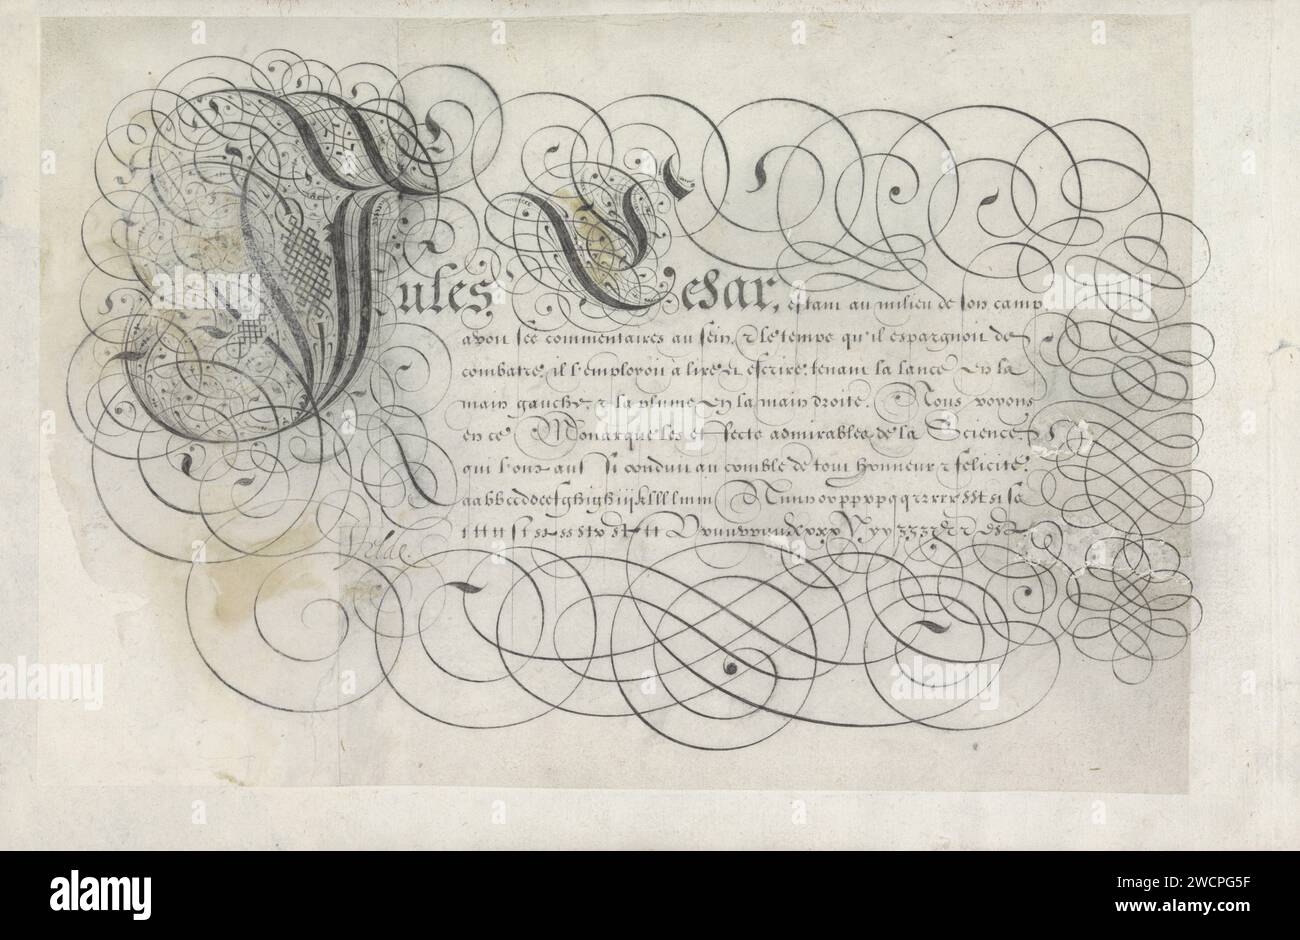 Jules Cesar, estant au milieu de son camp
avoit sês commentaires au sein, & le temps qu'il espargnoit de
combatre, il l'employoit à lire et escrire, tenant la lance en la
main gauche, & la plume en la main droite. Nous voyons
en ce Monarque les effects admirables de la Science,
qui l'ont ainsi conduit au comble de tout honneur & felicité.
Velde.
alamy
Image ID: 2WCPG5F
www.alamy.com